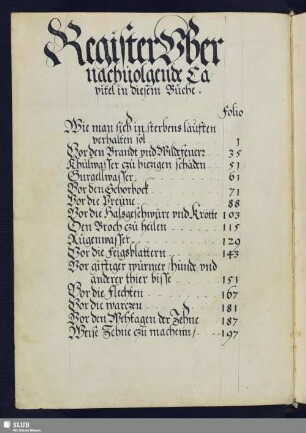 Register Vber
nachuolgende Ca
pitel in diesem Buche.
Folio
Wie man sich in sterbens leufften
verhalten sol 1
Vor den Brandt vnd Wildfeuer 35
Khülwasser czu hiczigen schaden 51
Gurgellwasser 61
Vor den Schorbock 71
Vor die Preune 88
Vor die Halsgeschwüre vnd Krotte 103
Den Broch czu heilen 115
Augenwasser 129
Vor die Feigblattern 143
Vor gifftiger würmer, hunde vnd
anderer thier bisse 151
Vor die Flechten 167
Vor die warczen 181
Vor den Wehtagen der Zehne 187
Weise Zehne czu machenn 197
SLUB
Wir führen Wissen.